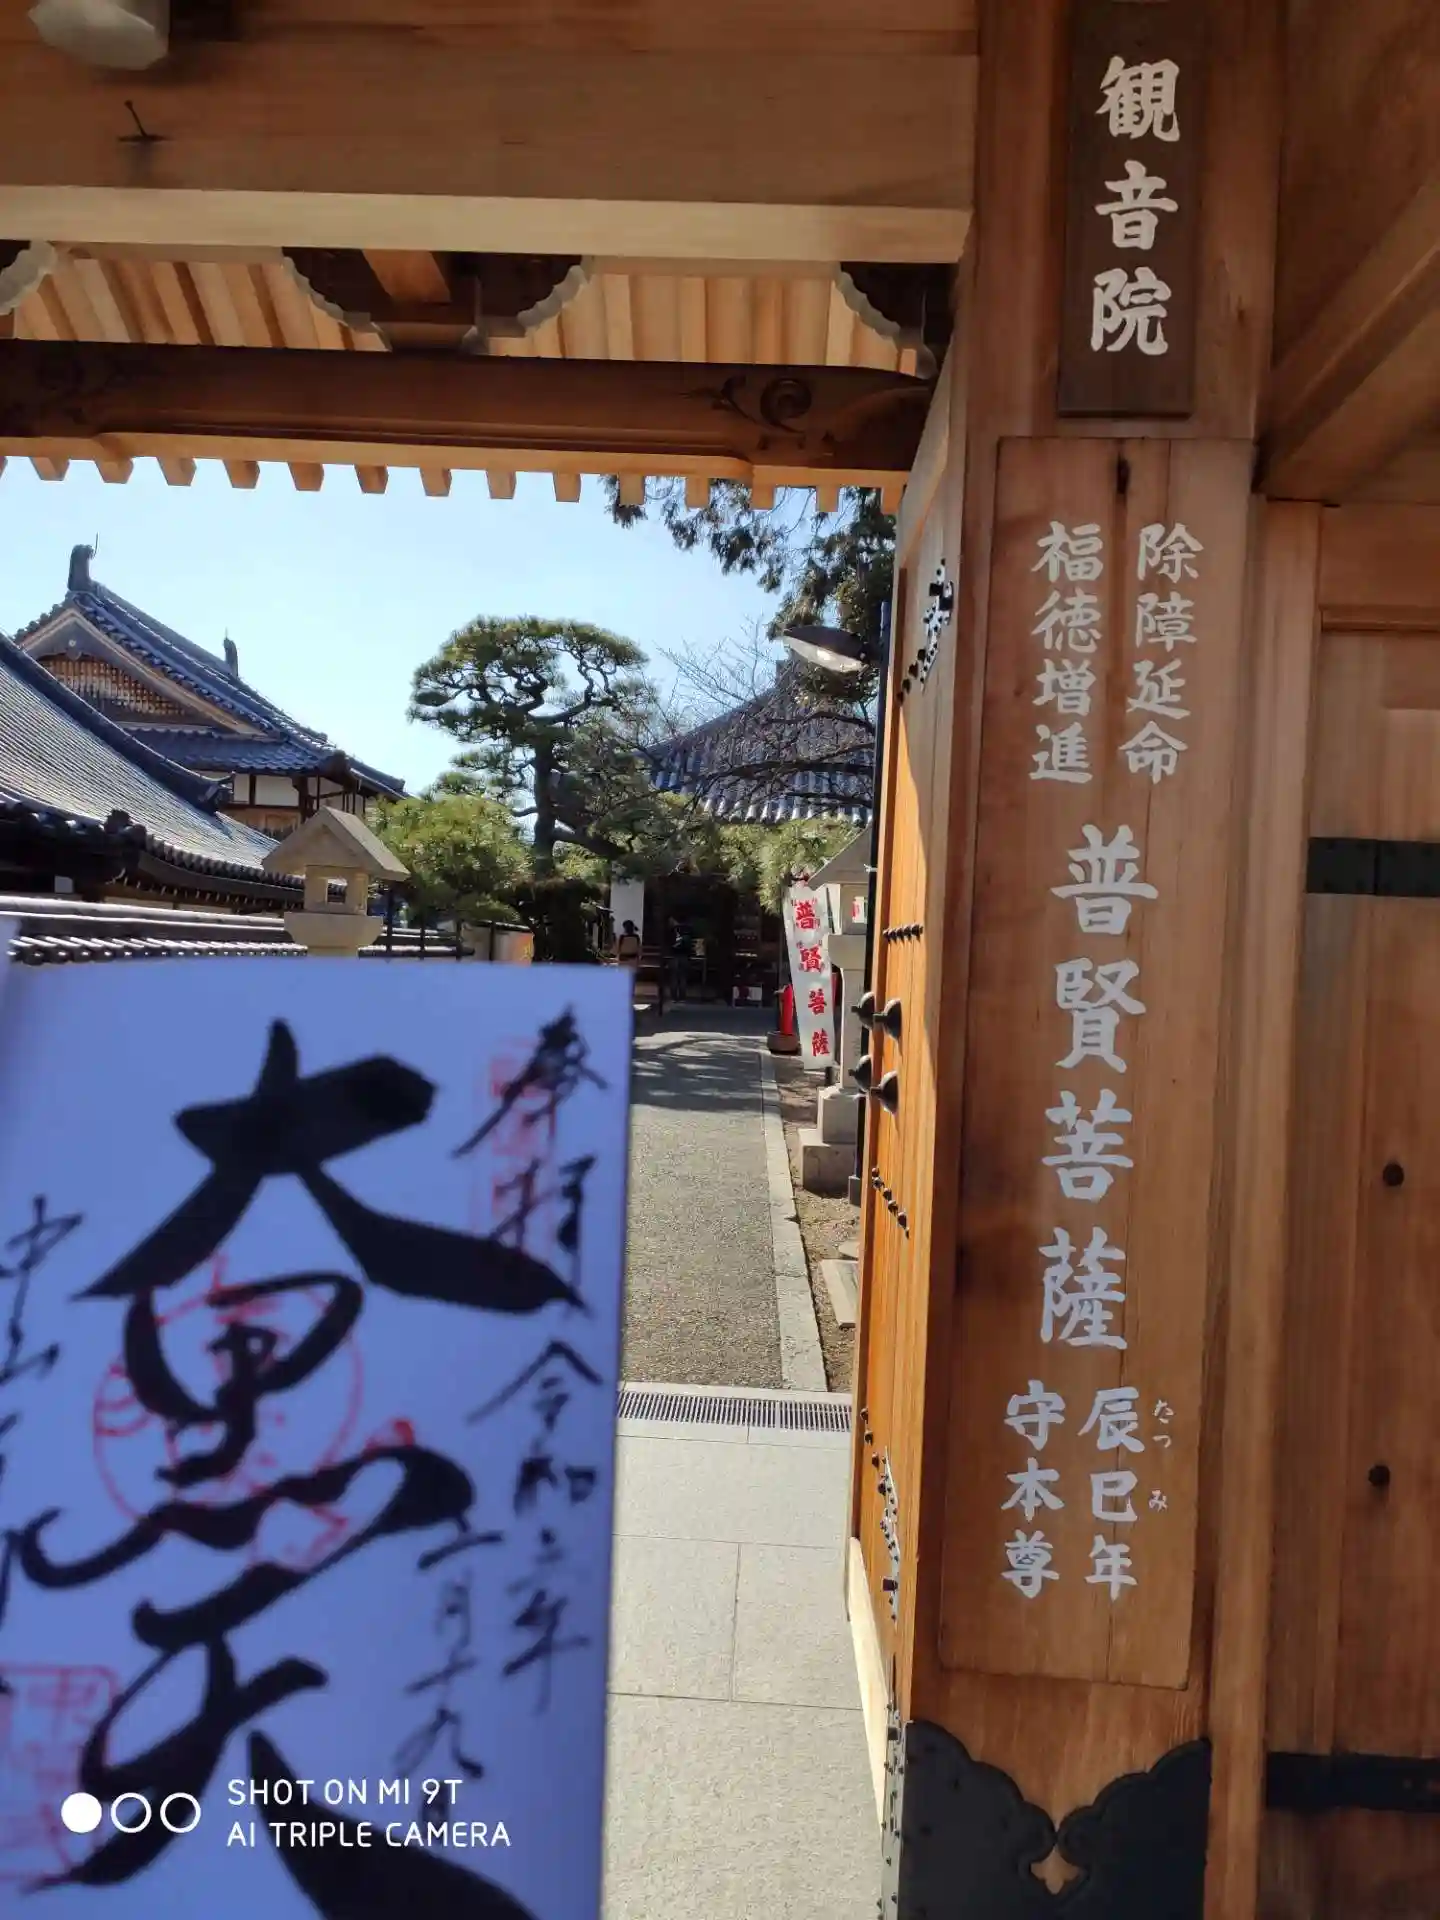 観音院
除障延命
福徳増進
普賢菩薩
辰巳年
たつみ
守本尊
普賢菩薩
奉拝
令和二年
二月十九日
大黒天
中山寺
SHOT ON MI 9T
AI TRIPLE CAMERA